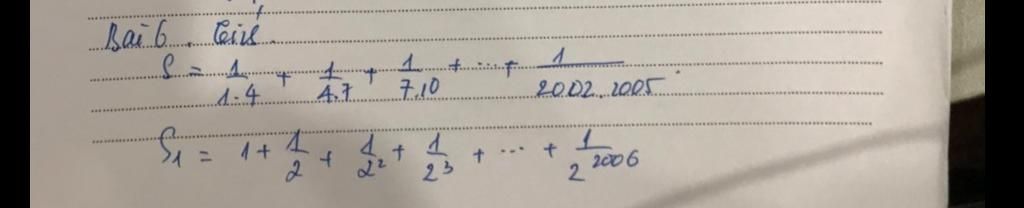 Bài 6. Tính.
S = 1/1.4 + 1/4.7 + 1/7.10 + ... + 1/2002.2005
S₁ = 1 + 1/2 + 1/2² + 1/2³ + ... + 1/2²⁰⁰⁶